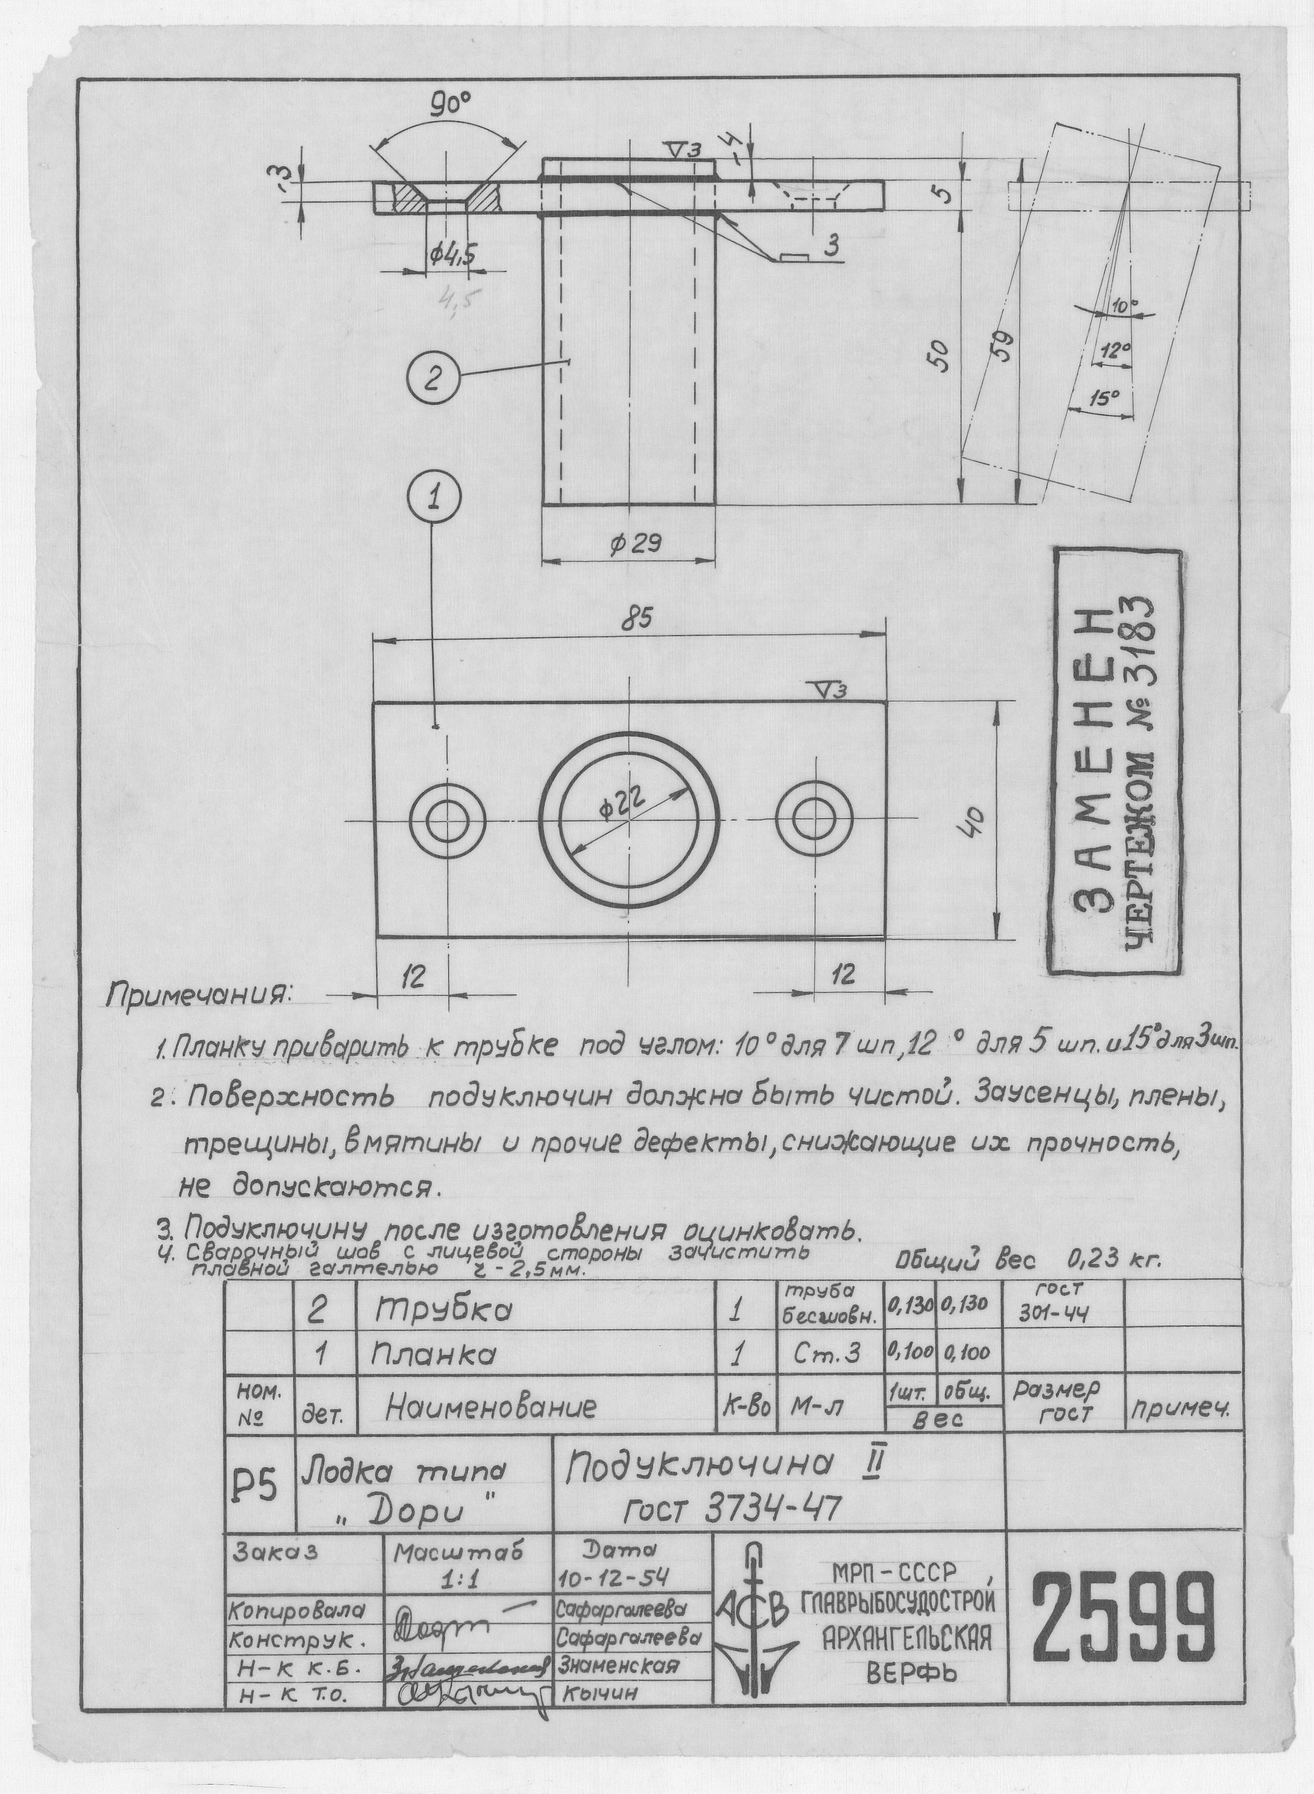 90°
-3
∇3
-4
5
φ4,5
4,5
3
10°
12°
15°
50
59
2
1
φ29
85
∇3
φ22
40
12
12
ЗАМЕНЕН
ЧЕРТЕЖОМ № 3183
Примечания:
1. Планку приварить к трубке под углом: 10° для 7 шп, 12° для 5 шп. и 15° для 3 шп.
2. Поверхность подуключин должна быть чистой. Заусенцы, плены,
трещины, вмятины и прочие дефекты, снижающие их прочность,
не допускаются.
3. Подуключину после изготовления оцинковать.
4. Сварочный шов с лицевой стороны зачистить
плавной галтелью r - 2,5 мм.
Общий вес 0,23 кг.
2 Трубка 1 труба бесшовн. 0,130 0,130 гост 301-44
1 Планка 1 Ст.3 0,100 0,100
ном. № дет. Наименование К-во М-л 1шт. общ. вес Размер гост примеч.
Р5 Лодка типа „Дори" Подуключина II
гост 3734-47
Заказ Масштаб 1:1 Дата 10-12-54
Копировала Сафаргалеева
Конструк. Сафаргалеева
Н-к К.Б. Знаменская
Н-к Т.О. Кычин
АСВ
МРП-СССР,
ГЛАВРЫБОСУДОСТРОЙ
АРХАНГЕЛЬСКАЯ
ВЕРФЬ
2599